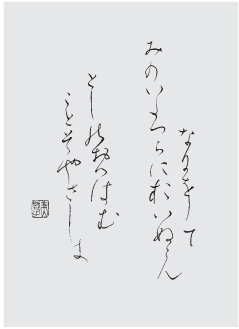 なにをして
みのいたつらにおいぬらん
としのおもはむ
ことそやさしき